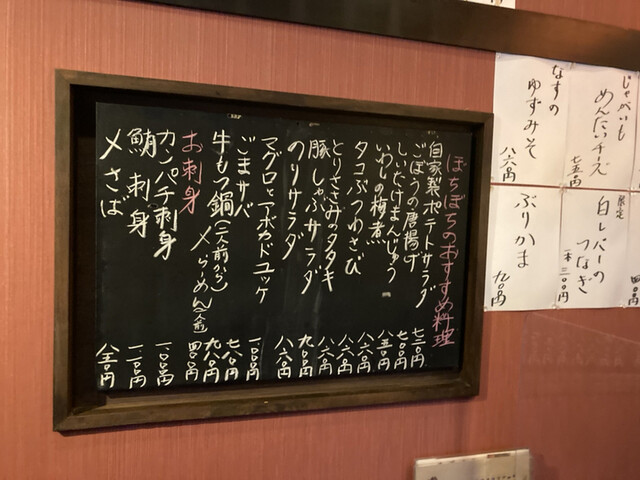 ぼちぼちのおすすめ料理
自家製ポテトサラダ
ごぼうの唐揚げ 七〇〇円
しいたけまんじゅう 八五〇円
いわしの梅煮 八六〇円
タコぶつわさび 八六〇円
とりささみのタタキ 八六〇円
豚しゃぶサラダ 九〇〇円
のりサラダ 八六〇円
マグロとアボカドユッケ 一〇〇〇円
ごまサバ 七八〇円
牛もつ鍋(二人前から) 九八〇円
〆らーめん(一人前) 四〇〇円
お刺身
カンパチ刺身 一〇〇〇円
鮪刺身
〆さば 八五〇円
じゃがいも
めんたいチーズ 七五〇円
なすの
ゆずみそ 八六〇円
限定
白レバーの
つなぎ 一本 三〇〇円
ぶりかま 九〇〇円